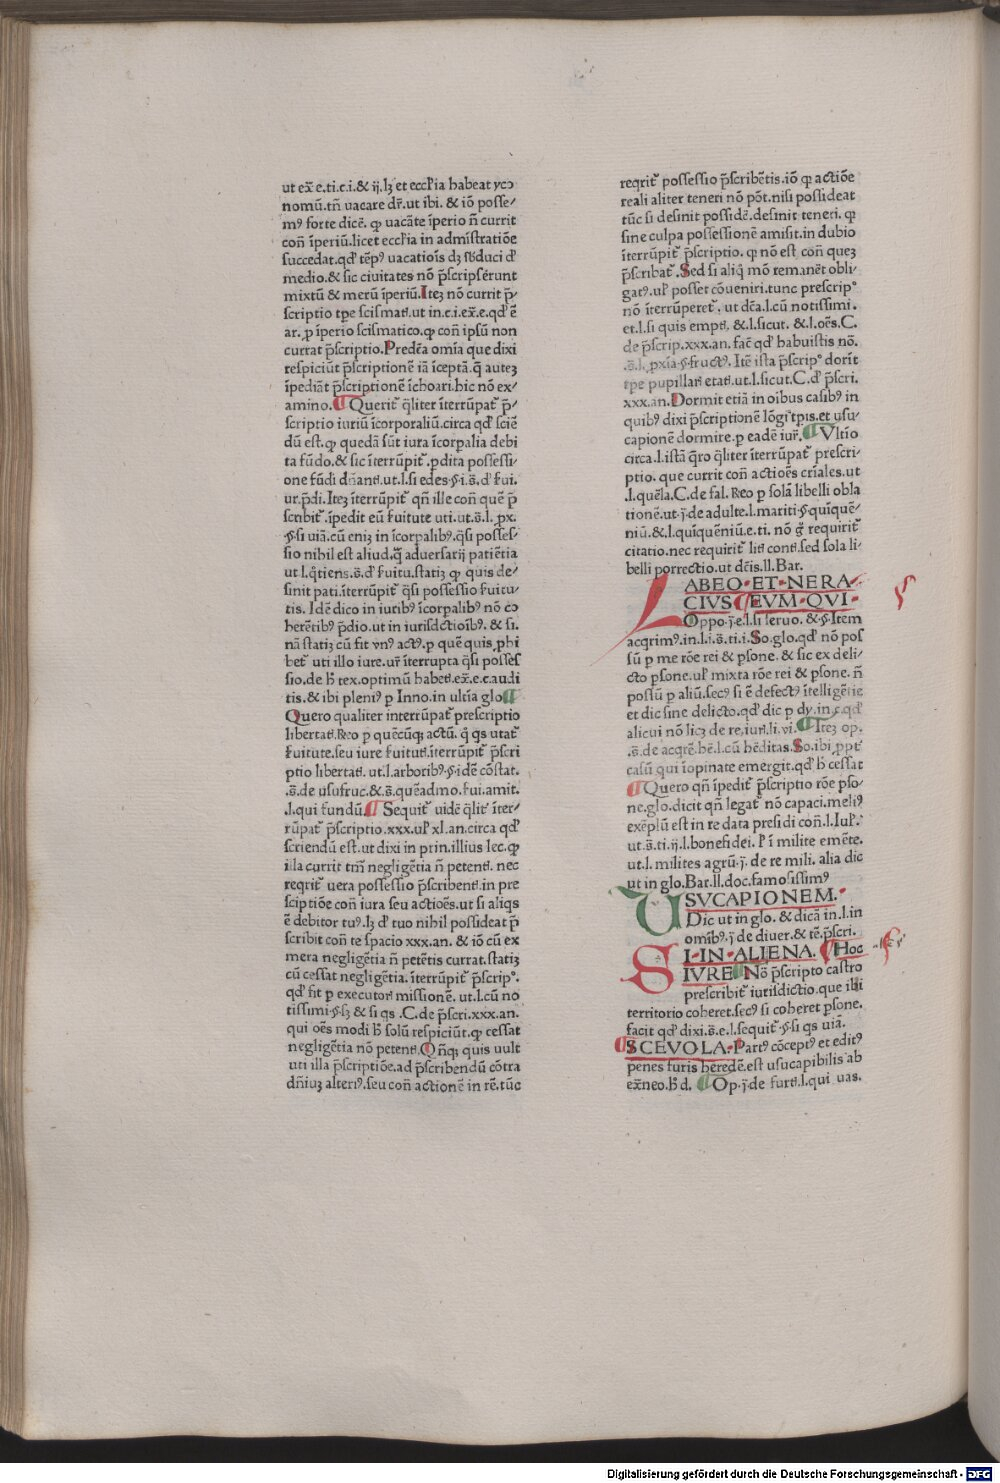 ut ex̄ e.ti.c.i.& ij.lꝫ et eccl'ia habeat yco
nomū.tñ uacare dr̄.ut ibi. & iō posse/
mꝰ forte dicē. ꝙ uacāte īperio ñ currit
con̄ īperiū.licet eccl'ia in admīstratiōe
succedat.qđ tēpꝰ uacatiōis dꝫ s̄bduci đ
medio.& sic ciuitates nō p̄scripsērunt
mixtū & merū īperiū.Itez nō currit p̄/
scriptio tp̄e scismatꝭ.ut in.c.i.ex̄.e.qđ ē
ar. ꝓ īperio scismatico.ꝙ con̄ ipsū non
currat p̄scriptio.Predc̄a omīa que dixi
respiciūt p̄scriptionē iā īceptā.q̄ autez
īpediāt p̄scriptionē īchoari.hic nō ex/
amino.¶Querit̄ q̄liter īterrūpat̄ p̄/
scriptio iuriū īcorporaliū.circa qđ sciē
dū est.ꝙ quedā sūt iura īcorpalia debi
ta fūdo.& sic īterrūpit̄.ꝑdita possessi/
one fūdi dn̄antꝭ.ut.l.si edes.§.i.s̄.đ ẜui.
ur.p̄di.Itez īterrūpit̄ qn̄ ille con̄ quē p̄
scribit̄.īpedit eū ẜuitute uti.ut.s̄.l. ꝓx.
.§.si uiā.cū eniꝫ in īcorpalibꝰ.q̄si posses/
sio nihil est aliud.q̄ aduersarij patiētia
ut l.q̄tiens.s̄.đ ẜuitu.statiꝫ ꝙ quis de/
sinit pati.īterrūpit̄ q̄si possessio ẜuitu/
tis. Idē dico in iuribꝰ īcorpalibꝰ nō co
herētibꝰ p̄dio.ut in iurisdc̄tioībꝰ. & si.
nā statiꝫ cū fit vnꝰ actꝰ.ꝑ quē quis ꝓhi
bet̄ uti illo iure.ur̄ īterrupta q̄si posses
sio.de h̄ tex.optimū habetꝭ.ex̄.e.c.audi
tis.& ibi plenīꝰ ꝑ Inno.in ultīa glo¶
Quero qualiter interrūpat̄ prescriptio
libertatꝭ.Reo ꝑ quēcūqꝫ actū. q̄ qs utat̄
ẜuitute.seu iure ẜuitutꝭ.īterrūpit̄ p̄scri
ptio libertatꝭ. ut.l.arboribꝰ.§.idē cōstat.
.s̄.de usufruc.&.s̄.quēadmo.ẜui.amit.
.l.qui fundū.¶ Sequit̄ uidē q̄lit̄ īter/
rūpat̄ p̄scriptio.xxx.ul' xl.an.circa qđ
scriendū est.ut dixi in prin.illius lec.ꝙ
illa currit tm̄ negligētia ñ petentꝭ. nec
reqrit̄ uera possessio p̄scribentꝭ.in pre
sciptiōe con̄ iura seu actioēs.ut si aliqs
ē debitor tuꝰ.lꝫ đ tuo nihil possideat p̄
scribit con̄ te spacio xxx.an. & iō cū ex
mera negligētia ñ petētis currat.statiꝫ
cū cessat negligētia. īterrūpit̄ p̄scripº.
qđ fit ꝑ executorꝭ missionē. ut.l.cū no
tissimi.§.sꝫ & si qs .C.de p̄scri.xxx.an.
qui oēs modi h̄ solū respiciūt.ꝙ cessat
negligētia nō petentꝭ.Qn̄qꝫ quis uult
uti illa p̄scriptiōe.ad p̄scribendū cōtra
dn̄iuꝫ alterꝰ.seu con̄ actionē in rē.tūc
reqrit̄ possessio p̄scribētis.iō ꝙ actiōe
reali aliter teneri nō pōt.nisi possideat
tūc si desinit possidē.desinit teneri. ꝙ
sine culpa possessionē amisit.in dubio
īterrūpit̄ p̄scriptio. ꝙ nō est con̄ quez
p̄scribat̄.Sed si aliq̄ mō remanēt obli/
gatꝰ.ul' posset cōueniri.tunc prescripº
nō īterrūperet̄. ut dc̄a.l.cū notissimi.
et.l.si quis emptꝭ. &.l.sicut. &.l.oēs.C.
de p̄scrip.xxx.an. fac̄ qđ habuistis nō.
.s̄.l.ꝓxīa.§.fructꝰ. Itē ista p̄scripº dorīt
tp̄e pupillarꝭ etatꝭ.ut.l.sicut.C.đ p̄scri.
xxx.an.Dormit etiā in oibus casibꝰ in
quibꝰ dixi p̄scriptionē lōgi tꝑis.et usu/
capionē dormire.ꝑ eadē iur̄.¶Vltīo
circa.l.istā q̄ro q̄liter īterrūpat̄ prescri/
ptio. que currit con̄ actioēs crīales.ut
.l.quēla.C.de fal. Reo ꝑ solā libelli obla
tionē.ut.j̄.de adulte.l.mariti.§.quīquē/
niū.&.l.quīquēniū.e.ti. nō ḡ requirit̄
citatio.nec requirit̄ litꝭ contꝭ.sed sola li/
belli porrectio.ut dc̄is.ll.Bar.
LABEO·ET·NERA
CIVS ¶EVM·QVI·
Oppo.j̄.e.l.si seruo. &.§.Item
acqrimꝰ.in.l.i.s̄.ti.i.So.glo.qđ nō pos
sū ꝑ me rōe rei & ꝑsone. & sic ex deli/
cto ꝑsone.ul' mixta rōe rei & ꝑsone. ñ
possū ꝑ aliū.secꝰ si ē defectꝰ ītelligētie
et dic sine delicto.qđ dic ꝑ dy.in.c.qđ
alicui nō licꝫ de re.iurꝭ.li.vi.¶Itez op.
.s̄.de acqrē.hē.l.cū hēditas.So.ibi ꝓpt̄
casū qui īopinate emergit.qđ h̄ cessat
¶Quero qn̄ īpedit̄ p̄scriptio rōe ꝑso/
ne.glo.dicit qn̄ legat̄ nō capaci.melꝰ
exēplū est in re data presidi con̄.l.Iul'.
ut.s̄.ti.ij.l.bonefidei. l' ī milite emēte.
ut.l. milites agrū.j̄. de re mili. alia dic
ut in glo.Bar.ll.doc.famosissimꝰ
USVCAPIONEM.
Dic ut in glo. & dicā in.l.in
omībꝰ.j̄ de diuer.& tē.p̄scri.
SI·IN·ALIENA. ¶Hoc
IVRE¶Nō p̄scripto castro
prescribit̄ iurisdictio.que ibi
territorio coheret.secꝰ si coheret ꝑsone.
facit qđ dixi.s̄.e.l.sequit̄.§.si qs uiā.
¶SCEVOLA.Partꝰ cōceptꝰ et editꝰ
penes furis heredē.est usucapibilis ab
ex̄neo.h̄ d. ¶Op.j̄.de furtꝭ.l.qui uas.
Digitalisierung gefördert durch die Deutsche Forschungsgemeinschaft - DFG